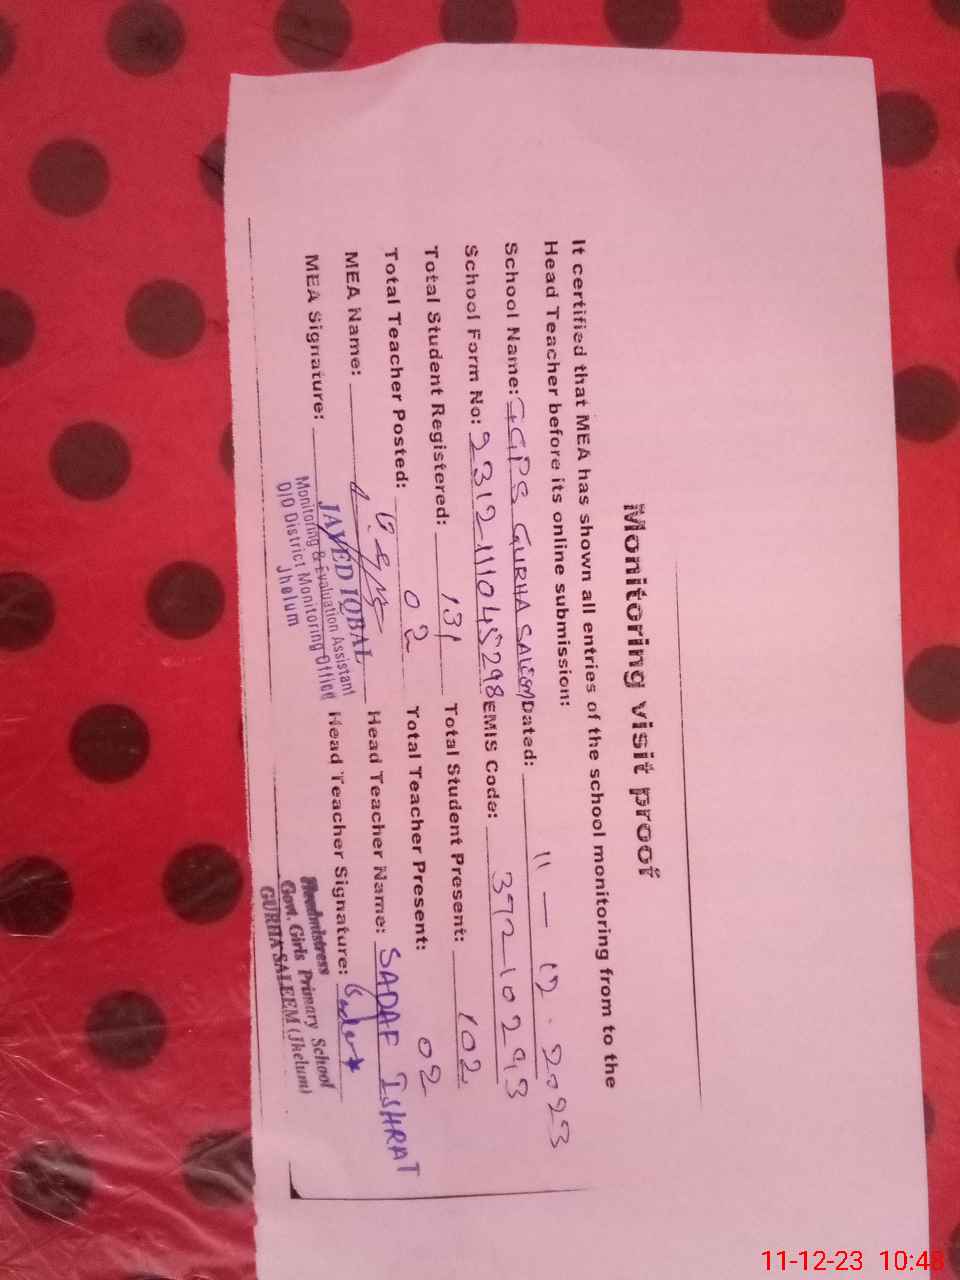 Monitoring visit proof
It certified that MEA has shown all entries of the school monitoring from to the
Head Teacher before its online submission:
School Name: GGPS GURHA SALEEM Dated: 11-12-2023
School Form No: 23121110445298 EMIS Code: 37210293
Total Student Registered: 131 Total Student Present: 102
Total Teacher Posted: 02 Total Teacher Present: 02
MEA Name: Head Teacher Name: SADAF ISHRAT
MEA Signature: Head Teacher Signature:
JAVED IQBAL
Monitoring & Evaluation Assistant
O/O District Monitoring Office
Jhelum
Headmistress
Govt. Girls Primary School
GURHA SALEEM (Jhelum)
11-12-23 10:48